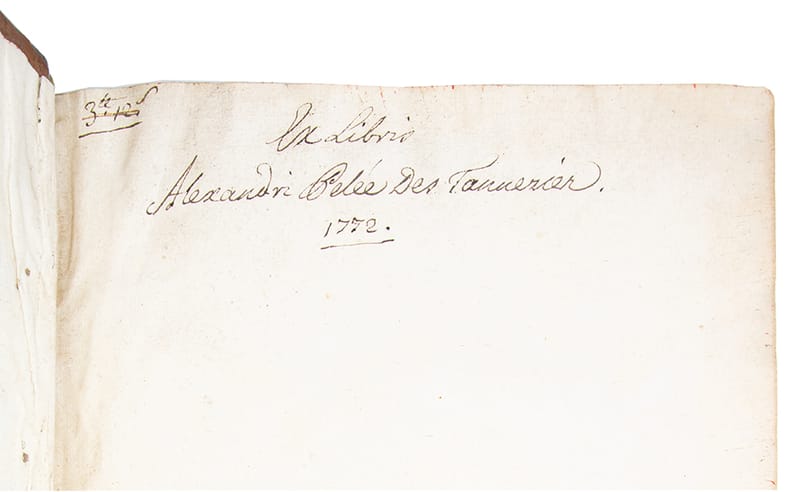 3tt 12s
Ex Libris
Alexandri Pelée Des Tanneries.
1772.